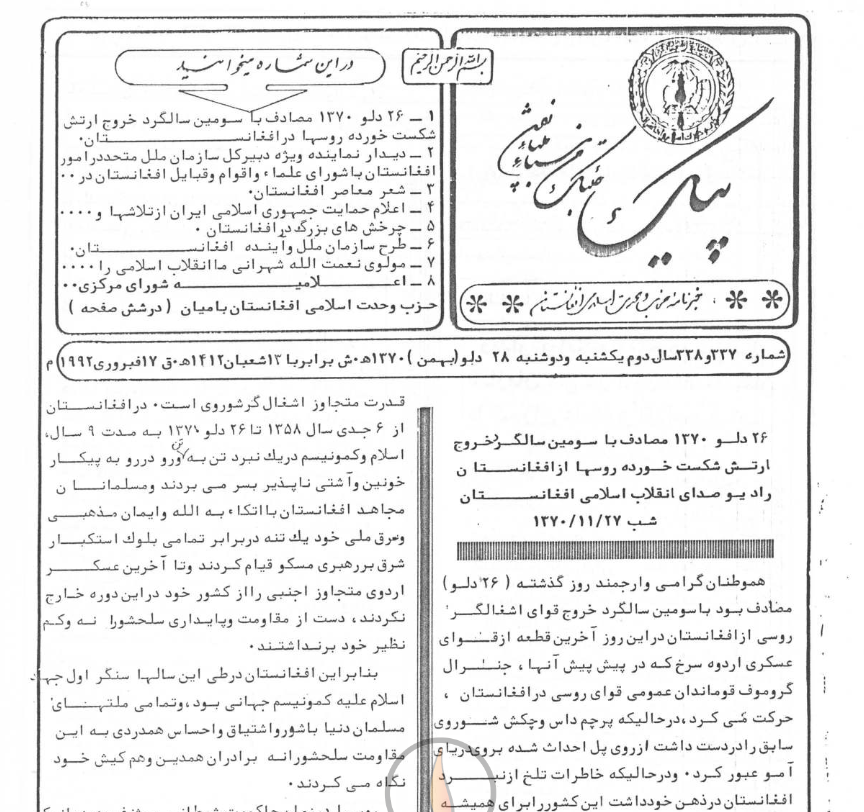 بسم الله الرحمن الرحیم
پیک
خبرنامه حزب و حرکت اسلامی افغانستان
در این شماره میخوانید
۱ ــ ۲۶ دلو ۱۳۷۰ مصادف با سومین سالگرد خروج ارتش
شکست خورده روسها درافغانســـــــــــتان۰
۲ ــ دیدار نماینده ویژه دبیرکل سازمان ملل متحددرامور
افغانستان باشورای علماء واقوام وقبایل افغانستان در ۰۰
۳ ــ شعر معاصر افغانستان۰
۴ ــ اعلام حمایت جمهوری اسلامی ایران ازتلاشها و ۰۰۰۰
۵ ــ چرخش های بزرگ درافغانستان ۰
۶ ــ طرح سازمان ملل وآینده افغانســـــــــــتان۰
۷ ــ مولوی نعمت الله شهرانی ماانقلاب اسلامی را ۰۰۰۰
۸ ــ اعـــــــــلامیـــــــــه شورای مرکزی۰۰
حزب وحدت اسلامی افغانستان بامیان ( درشش صفحه )
شماره ۳۳۷و۳۳۸سال دوم یکشنبه ودوشنبه ۲۸ دلو(بهمن ) ۱۳۷۰ه۰ش برابربا ۱۳شعبان۱۴۱۲ه۰ق ۱۷فبروری۱۹۹۲ م
۲۶ دلــو ۱۳۷۰ مصادف با سومین سالگردخروج
ارتــش شکست خــورده روسها ازافغانستـا ن
رادیــو صدای انقلاب اسلامی افغانســــــــتان
شب ۱۳۷۰/۱۱/۲۷
هموطنان گرامی وارجمند روز گذشتــه ( ۲۶ دلـو)
مصادف بود باسومین سالگرد خروج قوای اشغالگــر
روسی ازافغانستان دراین روز آخرین قطعه ازقــوای
عسکری اردوه سرخ کـه در پیش پیش آنهـا ، جنــرال
گروموف قوماندان عمومی قوای روسی درافغانستان ،
حرکت می کرد،درحالیکه پرچم داس وچکش شــوروی
سابق رادردست داشت ازروی پل احداث شده برویدریای
آمو عبور کرد۰ ودرحالیکه خاطرات تلخ ازنبــــرد
افغانستان درذهن خودداشت این کشوررابرای همیشـه
قـدرت متجاوز اشغال گرشوروی اسـت۰ درافغانســتان
از ۶ جدی سال ۱۳۵۸ تا ۲۶ دلو ۱۳۷۰ بـه مدت ۹ سال،
اسلام وکمونیسم دریک نبرد تن به تن ورو دررو به پیکـار
خونین وآشتی ناپذیر بسر می بردند ومسلمانـــا ن
مجاهد افغانستان بااتکاء به الله وایمان مذهبــی
وعرق ملی خود یک تنه دربرابر تمامی بلوک استکبــار
شرق بررهبری مسکو قیام کـردنـد وتا آخرین عسکـــر
اردوی متجاوز اجنبی رااز کشور خود دراین دوره خـارج
نکردند، دست از مقاومت وپایـداری سلحشورا نـه وکـم
نظیر خود برنـداشتند۰
بنابراین افغانستان درطی این سالهـا سنگر اول جهـاد
اسلام علیه کمونیسم جهانی بود،وتمامی ملتهـــای
مسلمان دنیا باشورواشتیاق واحساس همدردی بـه ایـن
مقاومت سلحشورانـه برادران همدیـن وهم کیش خــود
نگاه مـی کـردند۰